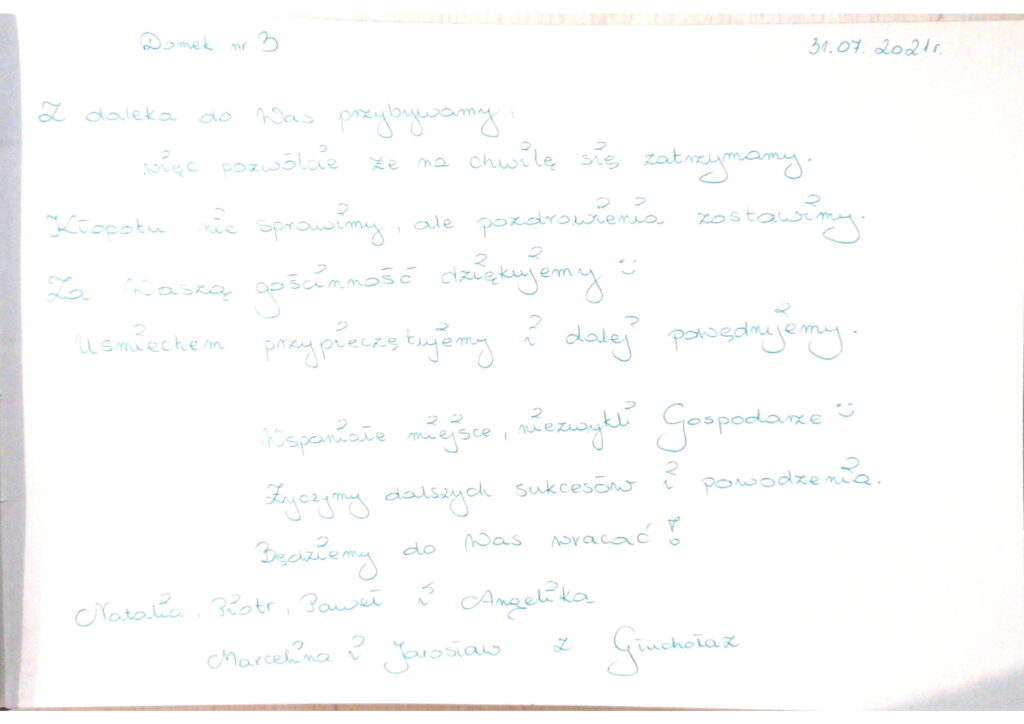 Domek nr 3 31.07.2021r.
Z daleka do Was przybywamy,
więc pozwólcie że na chwilę się zatrzymamy.
Kłopotu nie sprawimy, ale pozdrowienia zostawimy.
Za Waszą gościnność dziękujemy :)
Uśmiechem przypieczętujemy i dalej powędrujemy.
Wspaniałe miejsce, niezwykli Gospodarze :)
Życzymy dalszych sukcesów i powodzenia.
Będziemy do Was wracać!
Natalia, Piotr, Paweł i Angelika
Marcelina i Jarosław z Głuchołaz